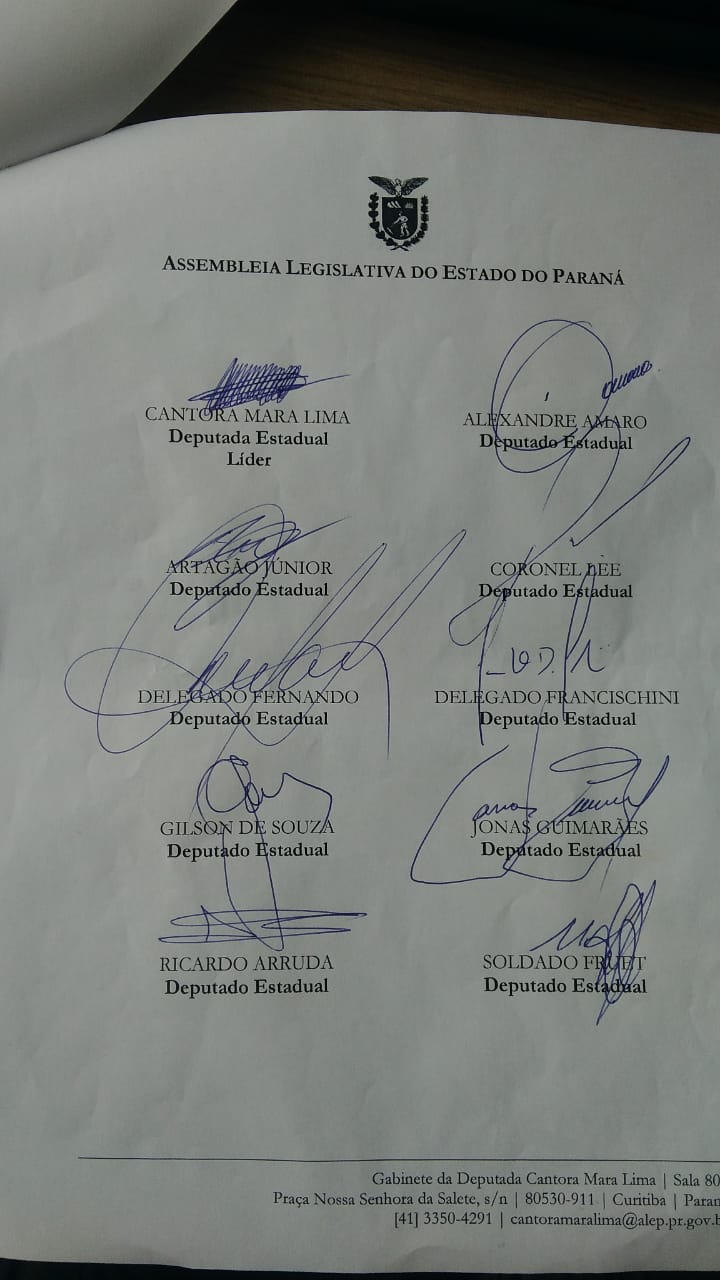 ASSEMBLEIA LEGISLATIVA DO ESTADO DO PARANÁ
CANTORA MARA LIMA
Deputada Estadual
Líder
ALEXANDRE AMARO
Deputado Estadual
ARTAGÃO JÚNIOR
Deputado Estadual
CORONEL LEE
Deputado Estadual
DELEGADO FERNANDO
Deputado Estadual
DELEGADO FRANCISCHINI
Deputado Estadual
GILSON DE SOUZA
Deputado Estadual
JONAS GUIMARÃES
Deputado Estadual
RICARDO ARRUDA
Deputado Estadual
SOLDADO FRUET
Deputado Estadual
Gabinete da Deputada Cantora Mara Lima | Sala 80
Praça Nossa Senhora da Salete, s/n | 80530-911 | Curitiba | Paran
[41] 3350-4291 | cantoramaralima@alep.pr.gov.b